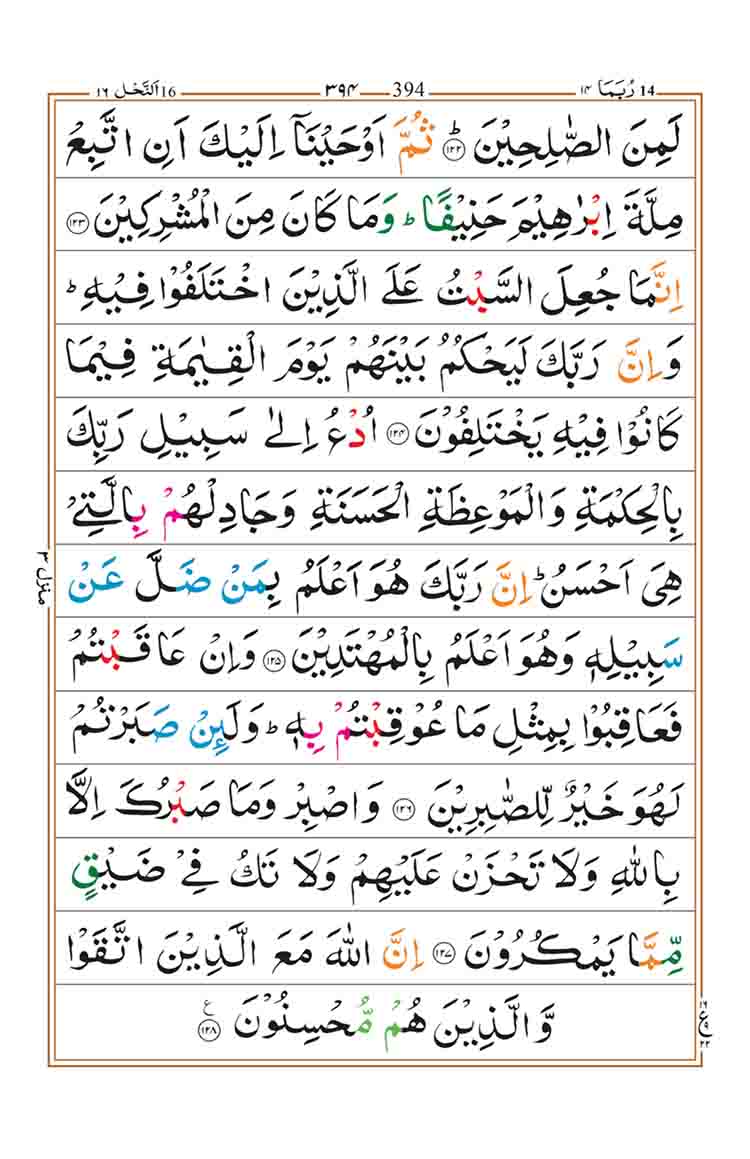 14 رُبَمَا ١٤ 394 ٣٩٤ 16 اَلنَّحْل ١٦
لَمِنَ الصّٰلِحِيْنَ ؕ ﴿۱۲۲﴾ ثُمَّ اَوْحَيْنَاۤ اِلَيْكَ اَنِ اتَّبِعْ
مِلَّةَ اِبْرٰهِيْمَ حَنِيْفًا ؕ وَمَا كَانَ مِنَ الْمُشْرِكِيْنَ ﴿۱۲۳﴾
اِنَّمَا جُعِلَ السَّبْتُ عَلَى الَّذِيْنَ اخْتَلَفُوْا فِيْهِ ؕ
وَاِنَّ رَبَّكَ لَيَحْكُمُ بَيْنَهُمْ يَوْمَ الْقِيٰمَةِ فِيْمَا
كَانُوْا فِيْهِ يَخْتَلِفُوْنَ ﴿۱۲۴﴾ اُدْعُ اِلٰى سَبِيْلِ رَبِّكَ
بِالْحِكْمَةِ وَالْمَوْعِظَةِ الْحَسَنَةِ وَجَادِلْهُمْ بِالَّتِيْ
هِيَ اَحْسَنُ ؕ اِنَّ رَبَّكَ هُوَ اَعْلَمُ بِمَنْ ضَلَّ عَنْ
سَبِيْلِهٖ وَهُوَ اَعْلَمُ بِالْمُهْتَدِيْنَ ﴿۱۲۵﴾ وَاِنْ عَاقَبْتُمْ
فَعَاقِبُوْا بِمِثْلِ مَا عُوْقِبْتُمْ بِهٖ ؕ وَلَئِنْ صَبَرْتُمْ
لَهُوَ خَيْرٌ لِّلصّٰبِرِيْنَ ﴿۱۲۶﴾ وَاصْبِرْ وَمَا صَبْرُكَ اِلَّا
بِاللّٰهِ وَلَا تَحْزَنْ عَلَيْهِمْ وَلَا تَكُ فِيْ ضَيْقٍ
مِّمَّا يَمْكُرُوْنَ ﴿۱۲۷﴾ اِنَّ اللّٰهَ مَعَ الَّذِيْنَ اتَّقَوْا
وَّالَّذِيْنَ هُمْ مُّحْسِنُوْنَ ﴿۱۲۸﴾ ع
منزل ۳
۱۶
ع
۹
۲۲